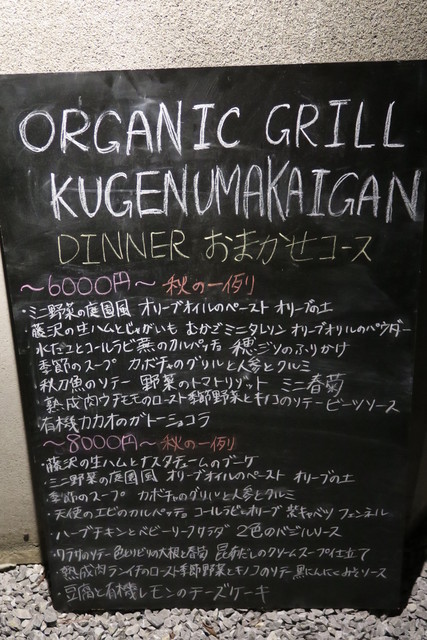 ORGANIC GRILL
KUGENUMAKAIGAN
DINNER おまかせコース
〜6000円〜 秋の一例
・ミニ野菜の庭園風 オリーブオイルのペースト オリーブの土
・藤沢の生ハムとじゃがいも むかご ミニタルソン オリーブオイルのパウダー
・水だことコールラビ 蕪のカルパッチョ 穂ジソのふりかけ
・季節のスープ カボチャのグリルと人参とクルミ
・秋刀魚のソテー 野菜のトマトリゾット ミニ春菊
・熟成肉ウデモモのロースト季節野菜とキノコのソテービーツソース
・有機カカオのガトーショコラ
〜8000円〜 秋の一例
・藤沢の生ハムとナスタチュームのブーケ
・ミニ野菜の庭園風 オリーブオイルのペースト オリーブの土
・季節のスープ カボチャのグリルと人参とクルミ
・天使のエビのカルパッチョ コールラビとオリーブ 紫キャベツ フェンネル
・ハーブチキンとベビーリーフサラダ 2色のバジルソース
・ワラサのソテー 色とりどりの大根と春菊 昆布だしのクリームスープ仕立て
・熟成肉ランイチのロースト季節野菜とキノコのソテー黒にんにくみそソース
・豆腐と有機レモンのチーズケーキ